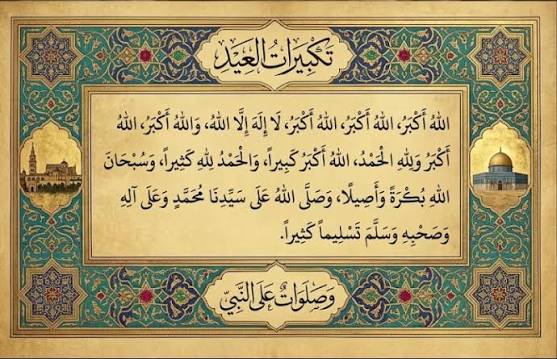 تَكْبِيرَاتُ الْعِيَدِ
اللهُ أَكْبَرُ، اللهُ أَكْبَرُ، اللهُ أَكْبَرُ، لَا إِلَهَ إِلَّا اللهُ، وَاللهُ أَكْبَرُ، اللهُ
أَكْبَرُ وَلِلّٰهِ الْحَمْدُ، اللهُ أَكْبَرُ كَبِيراً، وَالْحَمْدُ لِلّٰهِ كَثِيراً، وَسُبْحَانَ
اللهِ بُكْرَةً وَأَصِيلًا، وَصَلَّى اللهُ عَلَى سَيِّدِنَا مُحَمَّدٍ وَعَلَى آلِهِ
وَصَحْبِهِ وَسَلَّمَ تَسْلِيماً كَثِيراً.
وَصَلَوَاتٌ عَلَى النَّبِيِّ